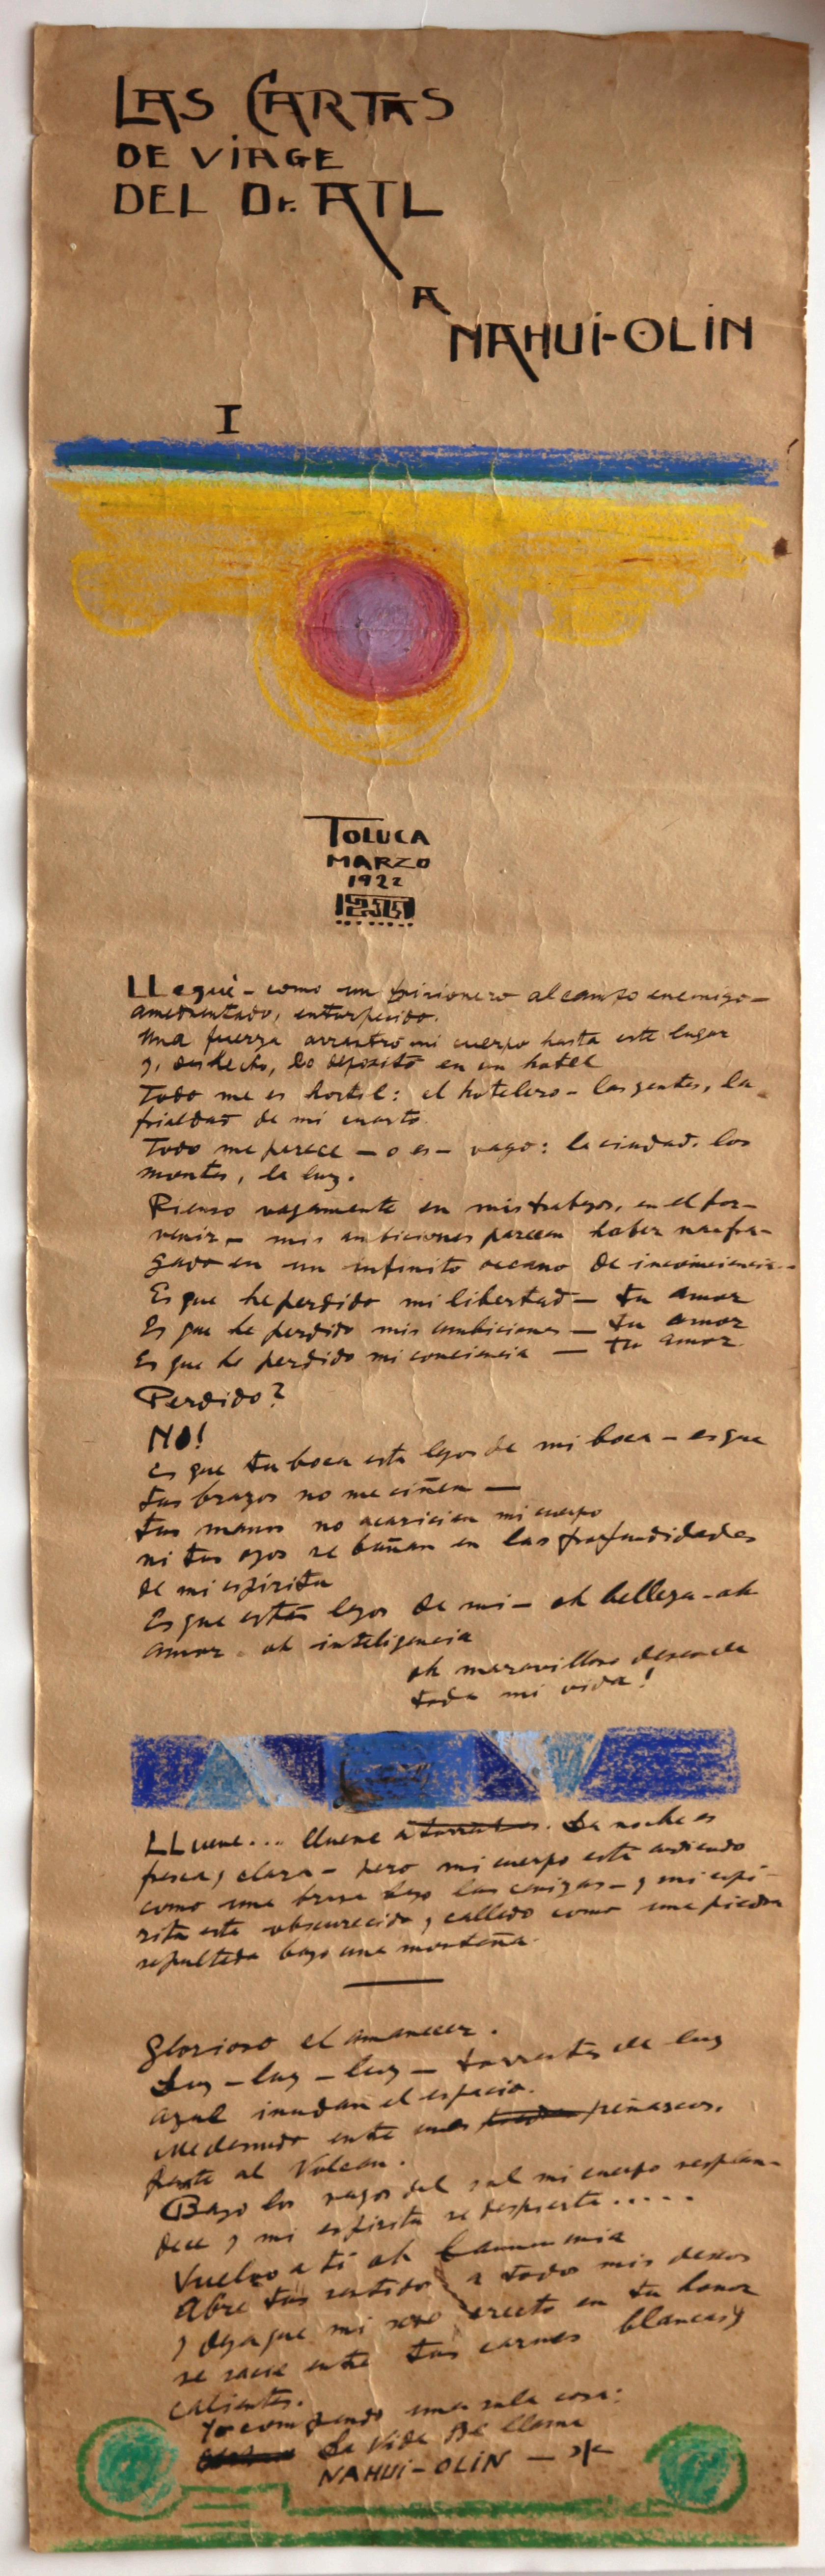 LAS CARTAS
DE VIAGE
DEL Dr. ATL
A
NAHUI-OLIN
I
TOLUCA
MARZO
1922
LLegué - como un prisionero al campo enemigo -
amedrentado, entorpecido.
Una fuerza arrastró mi cuerpo hasta este lugar
y, deshecho, lo depositó en un hotel
Todo me es hostil: el hotelero - las gentes, la
frialdad de mi cuarto.
Todo me parece - o es - vago: la ciudad, los
montes, la luz.
Pienso vagamente en mis trabajos, en el por-
venir - mis ambiciones parecen haber naufra-
gado en un infinito oceano de inconciencia -
Es que he perdido mi libertad - tu amor
Es que he perdido mis ambiciones - tu amor
Es que he perdido mi conciencia - tu amor.
Perdido?
NO!
es que tu boca esta lejos de mi boca - es que
tus brazos no me ciñen -
tus manos no acarician mi cuerpo
ni tus ojos se bañan en las profundidades
de mi espiritu
Es que estás lejos de mi - oh belleza - oh
amor - oh inteligencia
oh maravilloso deseo de
toda mi vida!
LLueve... llueve a torrentes. La noche es
fresca y clara - pero mi cuerpo está ardiendo
como una brasa bajo las cenizas - y mi espi-
ritu esta obscurecido y callado como una piedra
sepultada bajo una montaña.
Glorioso el amanecer.
Luz - luz - luz - torrentes de luz
azul inundan el espacio.
Me desnudo entre unos peñascos,
frente al Volcan.
Bajo los rayos del sol mi cuerpo resplan-
dece y mi espiritu se despierta.....
Vuelvo a ti oh mia
Abre tus sentidos a todos mis deseos
y deja que mi sexo erecto en tu honor
se sacie entre tus carnes blancas y
calientes.
Yo comprendo una sola cosa:
La Vida se llama
NAHUI-OLIN -